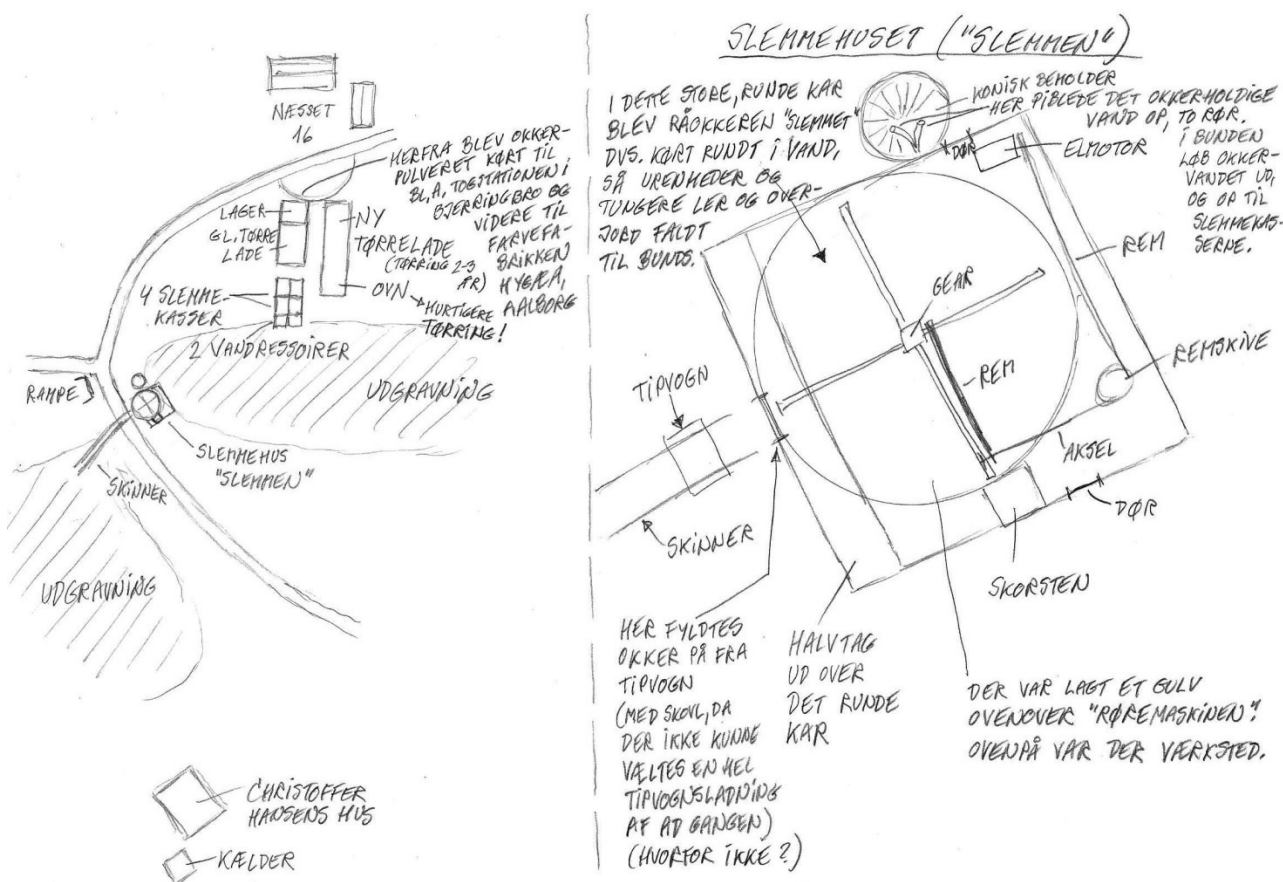 NÆSSET
16
HERFRA BLEV OKKER-
PULVERET KØRT TIL
BL,A, TOGSTATIONEN i
BJERRINGBRO OG
VIDERE TIL
FARVEFA-
BRIKKEN
HYGÆA,
AALBORG
LAGER
GL. TØRRE
LADE
NY
TØRRELADE
(TØRRING 2-3
ÅR)
OVN
HURTIGERE
TØRRING!
4 SLEMME-
KASSER
2 VANDRESSOIRER
UDGRAVNING
RAMPE
SLEMMEHUS
"SLEMMEN"
SKINNER
UDGRAVNING
CHRISTOFFER
HANSENS HUS
KÆLDER
SLEMMEHUSET ("SLEMMEN")
I DETTE STORE, RUNDE KAR
BLEV RÅOKKEREN "SLEMMET"
DVS. KØRT RUNDT I VAND,
SÅ URENHEDER OG
TUNGERE LER OG OVER-
JORD FALDT
TIL BUNDS.
KONISK BEHOLDER
HER PIBLEDE DET OKKERHOLDIGE
VAND OP, TO RØR.
I BUNDEN
LØB OKKER-
VANDET UD,
OG OP TIL
SLEMMEKAS-
SERNE.
DØR
ELMOTOR
REM
GEAR
REMSKIVE
REM
TIPVOGN
AKSEL
DØR
SKINNER
SKORSTEN
HER FYLDTES
OKKER PÅ FRA
TIPVOGN
(MED SKOVL, DA
DER IKKE KUNNE
VÆLTES EN HEL
TIPVOGNSLADNING
AF AD GANGEN)
(HVORFOR IKKE?)
HALVTAG
UD OVER
DET RUNDE
KAR
DER VAR LAGT ET GULV
OVENOVER "RØREMASKINEN".
OVENPÅ VAR DER VÆRKSTED.